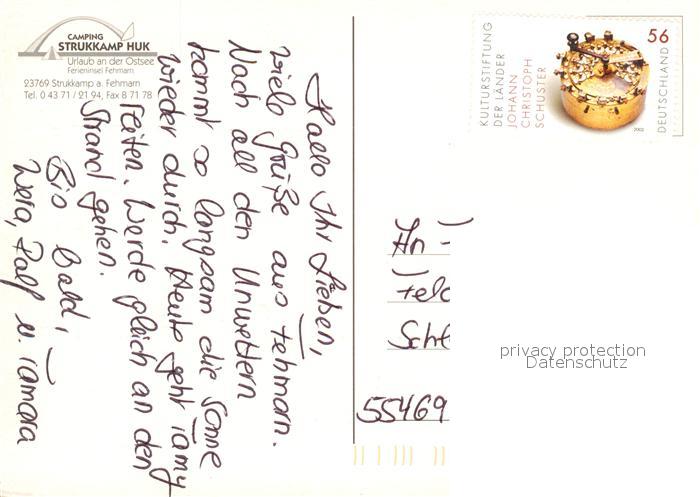 CAMPING
STRUKKAMP HUK
Urlaub an der Ostsee
Ferieninsel Fehmarn
23769 Strukkamp a. Fehmarn
Tel. 0 43 71 / 21 94, Fax 8 71 78
Hallo Ihr Lieben,
viele Grüße aus Fehmarn.
Nach all den Unwettern
kommt so langsam die Sonne
wieder durch. Heute geht Tamy
reiten. Werde gleich an den
Strand gehen.
Bis bald,
Wera, Ralf u. Tamara
KULTURSTIFTUNG
DER LÄNDER
JOHANN
CHRISTOPH
SCHUSTER
56
DEUTSCHLAND
2002
An
Feld
Sch
55469
privacy protection
Datenschutz